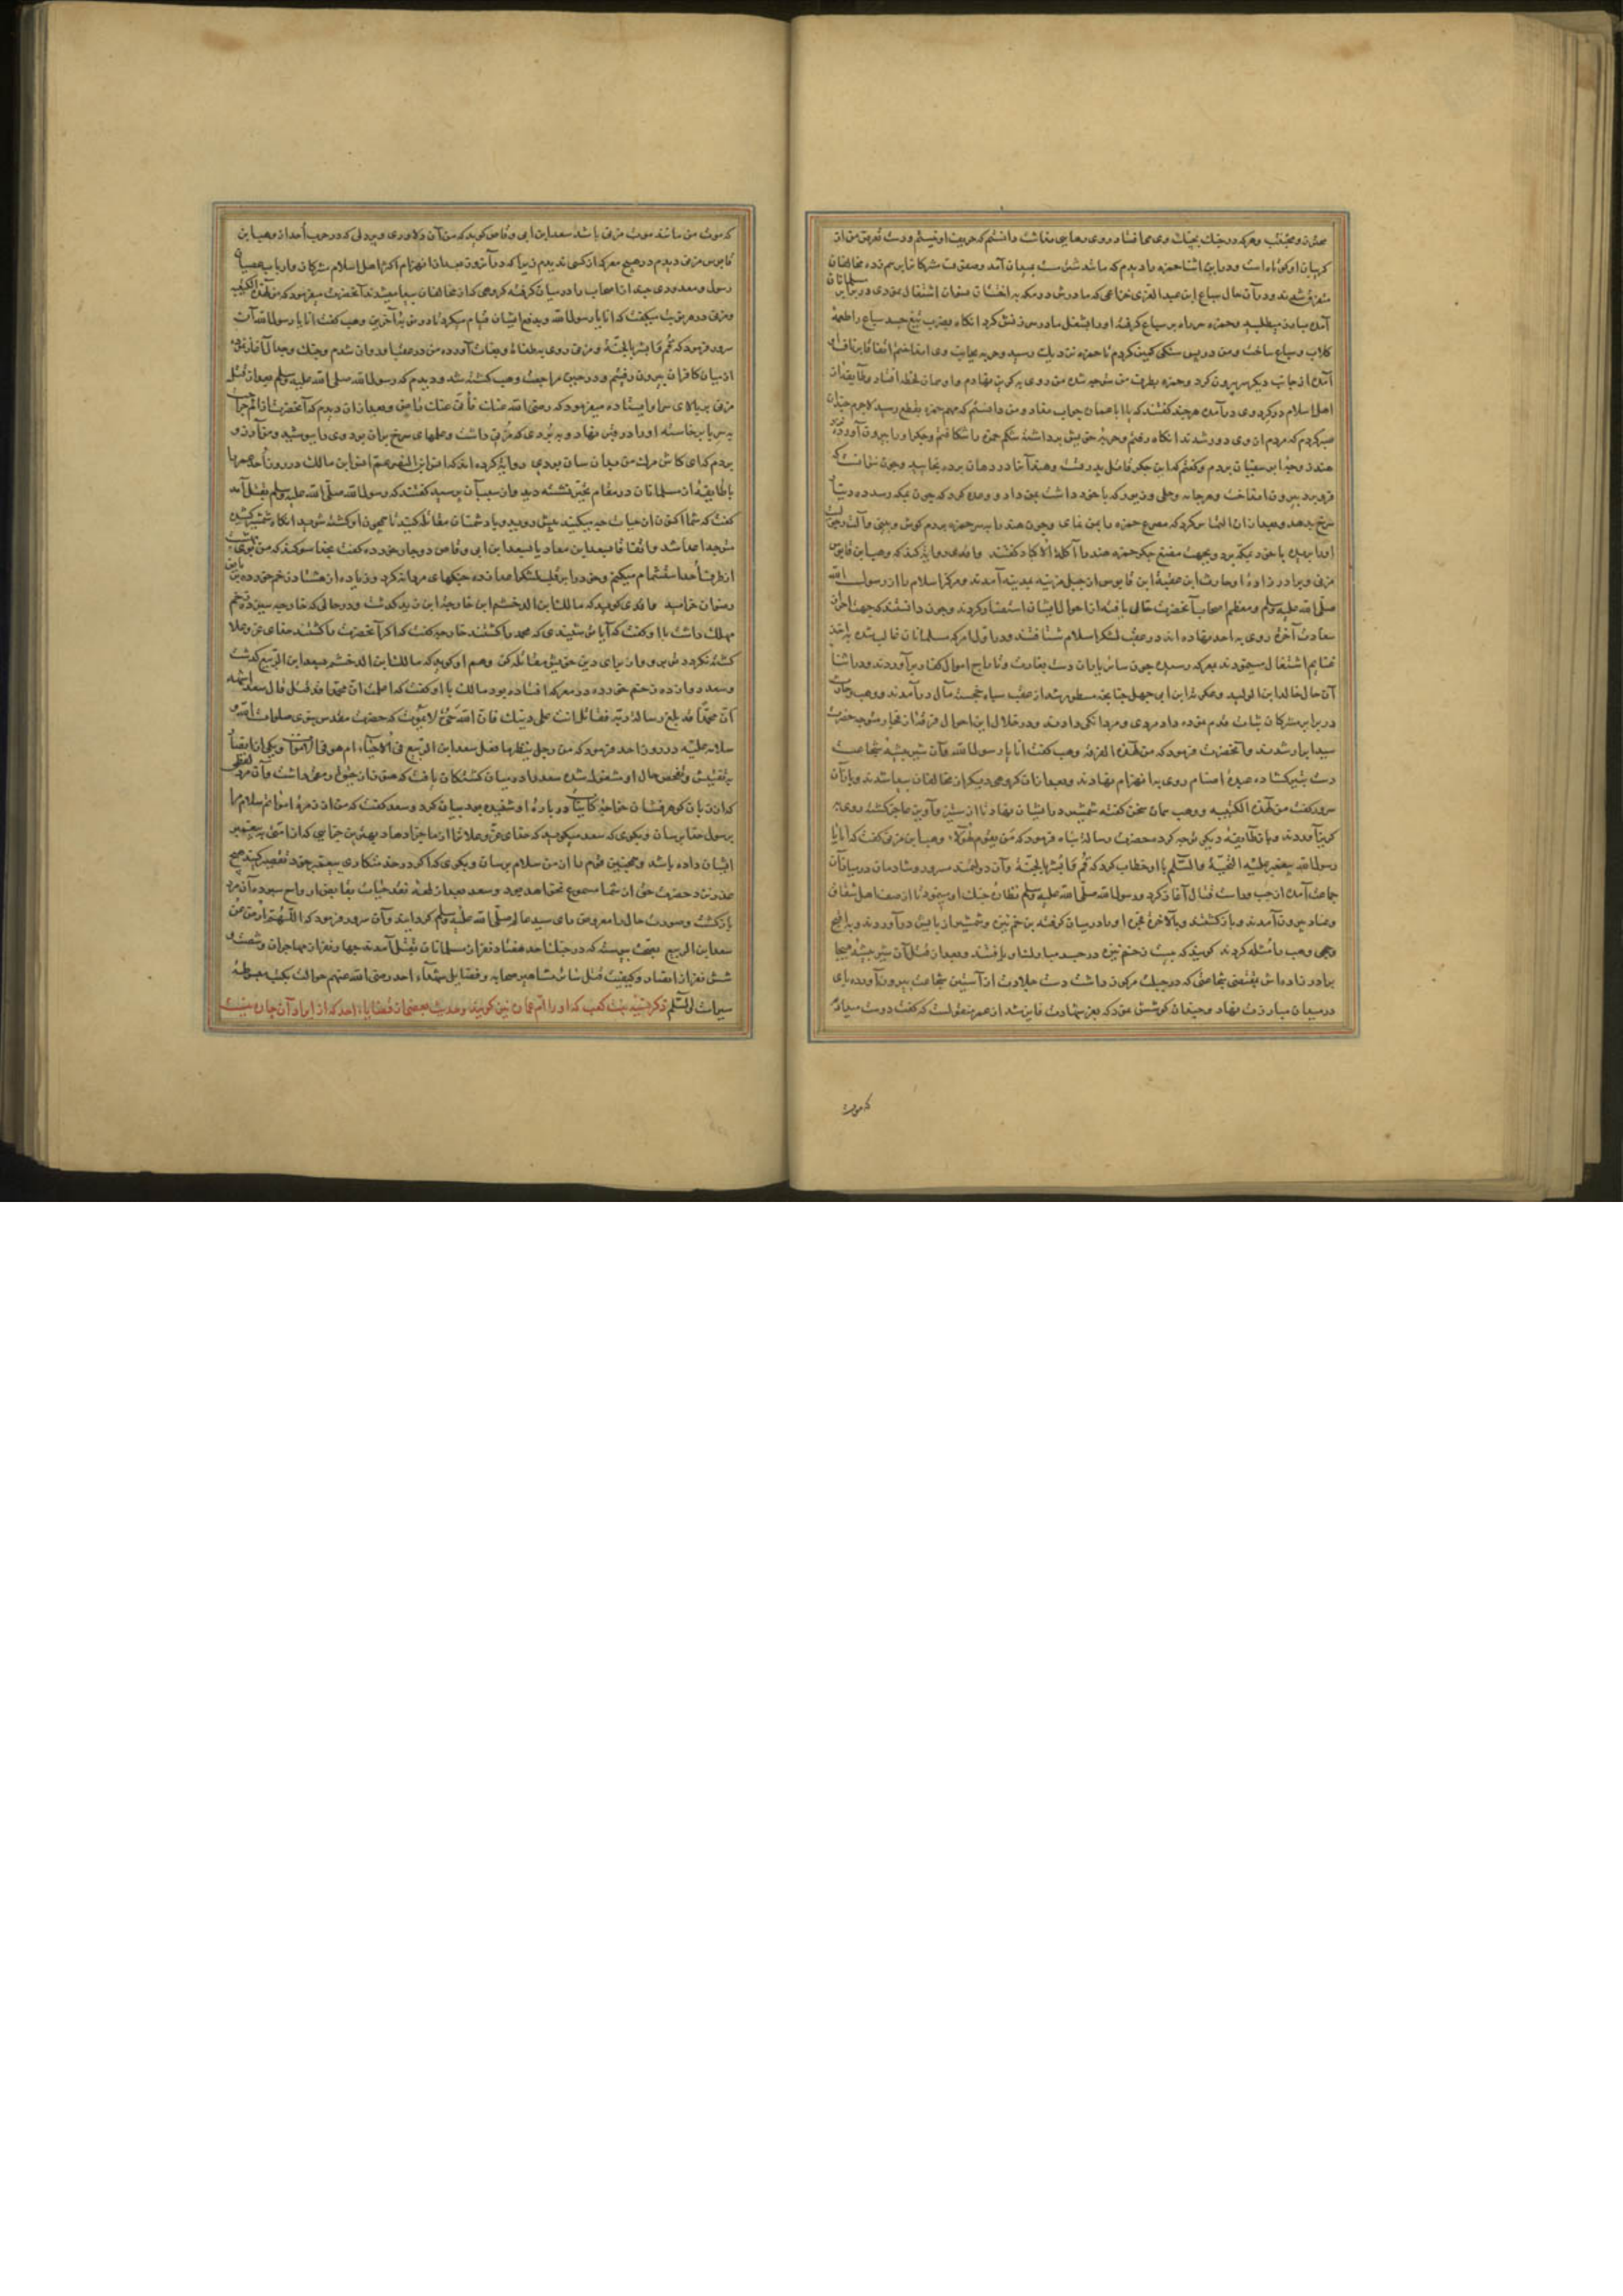 محزون و مجتنب و هر که در جنک بچنک وی می افتاد روی رهایی نداشت دانستم که حریف او نیستم و دست تعرض من از
کریبان او کوتاه است و در این اثنا حمزه را دیدم که مانند شتر مست بمیدان آمد و صفوف مشرکان را برهم زده مخالفان
متفرق شدند و در آن حال سباع ابن عبد العزی خزاعی که مادرش در مکه بختان صفوان اشتغال نمودی در برابر مسلمانان
آمده مبارز میطلبید و حمزه سر راه بر سباع کرفته او را بشغل مادرش سرزنش کرد انکاه بضرب تیغ جسد سباع را طعمهٔ
کلاب و سباع ساخت و من در پس سنکی کمین کردم تا حمزه نزدیک رسید و حربه بجانب وی انداختم
آمده از جانب دیکر سر بیرون کرد و حمزه بطرف من متوجه شد من روی بکریز نهادم و او همان لحظه افتاد و طایفه از
اهل اسلام در کرد وی در آمده هر چند کفتند که یا ابا عماره جواب نداد و من دانستم که مهم حمزه بقطع رسید لاجرم چندان
صبر کردم که مردم از وی دور شدند انکاه رفتم و حربه خویش برداشته شکم حمزه را شکافتم و جکر او را بیرون آورده نزد
هند زوجهٔ ابو سفیان بردم و کفتم که این جکر قاتل پدر تست و هند آنرا در دهان برده بخایید و چون نتوانست که
فرو برد بیرون انداخت و هر جامه و حلی و زیور که با خود داشت بمن داد و وعده کرد که چون بمکه رسد ده دینار
سرخ بدهد و بعد از آن التماس کرد که مصرع حمزه را بمن نمای و چون هند را بر سر حمزه بردم کوش و بینی و آلت
او را بریده با خود بمکه برد و بجهت مضغ جکر حمزه هند را آکلة الاکباد کفتند و واقدی روایت کند که وهب ابن قابوس
مزنی و برادر زادهٔ او حارث ابن عقبة ابن قابوس از جبل مزینه بمدینه آمدند و مرکز اسلام را از رسول الله
صلی الله علیه وسلم و معظم اصحاب آنحضرت خالی یافته از احوال ایشان استفسار کردند و چون دانستند که جهت احراز
سعادت آخرة روی به احد نهاده اند در عقب لشکر اسلام شتافتند و در اول امر که مسلمانان غالب شده به اخذ
غنایم اشتغال مینمودند بمعرکه رسیده چون سائر یاران دست بغارت و تاراج اموال کفار برآوردند و در اثنا
آن حال خالد ابن الولید و عکرمة ابن ابی جهل چنانچه مسطور شد از عقب سپاه خجسته مآل در آمدند و وهب و حارث
در برابر مشرکان ثبات قدم نموده داد مردی و مردانکی دادند و در خلال این احوال فرقهٔ از کفار متوجه حضرت
سید ابرار شدند و آنحضرت فرمود که من لهذه الفرقة وهب کفت انا یا رسول الله و آن شیر بیشهٔ شجاعت
دست بتیر کشاده عبدهٔ اصنام روی به انهزام نهادند و بعد از آن کروهی دیکر از مخالفان پیدا شدند و باز آن
سرور کفت من لهذه الکتیبه و وهب همان سخن کفته شمشیر در ایشان نهاد تا از ستیز و آویز عاجز کشته روی به
کریز آوردند و باز طایفهٔ دیکر توجه کرده حضرت رسالت پناه فرمود که من یقوم لهؤلاء وهب ابن مزنی کفت که انا یا
رسول الله پیغمبر علیه التحیة و السلم با او خطاب کرد که قم و ابشر بالجنة و آن دولتمند مسرور و شادمان در میان آن
جماعت آمده از چپ و راست قتال آغاز کرد و رسول الله صلی الله علیه وسلم نظارهٔ جنک او مینمود تا از صف اهل شقاق
و عناد بیرون آمدند و باز کشتند و بالآخرة کفره او را در میان کرفته بزخم نیزه و شمشیر از پایش در آوردند و به اقبح
وجهی وهب را مثله کردند کویند که بیست زخم نیزه در جسد مبارکش او یافتند و بعد از قتل آن شیر بیشهٔ هیجا
برادر زاده اش بمقتضی شجاعتی که در جبلت مرکوز داشت دست جلادت از آستین شجاعت بیرون آورده پای
در میدان مبارزت نهاد و چندان کوشش نمود که بعز شهادت فایز شد از عمر منقولست که کفت دوست میدارم
که موت
که موت من مانند موت مزنی باشد سعد ابن ابی وقاص کوید که من آن دلاوری و پردلی که در حرب احد از وهب ابن
قابوس مزنی دیدم در هیچ معرکه از کسی ندیدم زیرا که در آن روز بعد از انهزام اکثر اهل اسلام مشرکان
رسول و معدودی چند از اصحاب را در میان کرفته کروهی که از مخالفان پیدا میشدند آنحضرت میفرمود که من لهذه الکتیبه
و مزنی در هر نوبت میکفت که انا یا رسول الله و بدفع ایشان قیام میکرد تا در نوبت آخرین وهب کفت انا یا رسول الله آن
سرور فرمود که قم و ابشر بالجنة و مزنی روی
از میان کافران بیرون رفتیم و در حین مراجعت وهب کشته شد و دیدم که رسول الله صلی الله علیه وسلم بعد از قتل
مزنی بر بالای سر او ایستاده میفرمود که رضی الله عنک فانی عنک راض و بعد از آن دیدم که آنحضرت
بر پا برخاسته او را در قبر نهاد و به بردی که مزنی داشت و علمهای سرخ بر آن بود وی را بپوشید و من آرزو
بردم که ای کاش مرک من بدان سان بودی روایة کرده اند که انس ابن النضر عم انس ابن مالک در روز احد عمر را
با طایفهٔ از مسلمانان در مقام تحیر نشسته دید و از سبب آن پرسید کفتند که رسول الله صلی الله علیه وسلم بقتل آمد
کفت که شما اکنون از حیات چه میکنید پیش روید و با دشمنان مقاتله کنید تا همچون او کشته شوید انکاه شمشیر کشیده
متوجه اعدا شد و اتفاقا بسعد ابن معاذ یا بسعد ابن ابی وقاص دوچار خورده کفت بخدا سوکند که من بوی بهشت
از طرف احد استشمام میکنم و خود را بر قلب لشکر اعدا زده جنکهای مردانه کرد و زیاده از هشتاد زخم خورده بریاض
رضوان خرامید واقدی کوید که مالک ابن الدخشم ابن خارجة ابن زید کذشت و در حالی که خارجه سیزده زخم
مهلک داشت با او کفت که آیا می شنیدی که محمد را کشتند خارجه کفت که اکر آنحضرت را کشتند خدای عز و علا
کشته نکردد تو برو و از برای دین خویش مقاتله کن و هم او کوید که مالک ابن الدخشم بسعد ابن الربیع کذشت
و سعد دوازده زخم خورده در معرکه افتاده بود مالک با او کفت که اعلمت ان محمدا قد قتل قال سعد اشهد
ان محمدا قد بلغ رسالة ربه فقاتل انت علی دینک فان الله حی لا یموت که حضرت مقدس نبوی صلوات الله و
سلامه علیه در روز احد فرمود که من رجل ینظر ما فعل سعد ابن الربیع فی الاحیاء ام هو فی الاموات و یکی از انصار
به تفتیش و تفحص حال او مشغول شده سعد را در میان کشتکان یافت که هنوز از حیوة رمقی داشت و آن مرد لفظی
که از زبان کوهر فشان خواجهٔ کاینات در بارهٔ او شنیده بود بیان کرد و سعد کفت که من از زمرهٔ امواتم سلام مرا
برسول خدا برسان و بکوی که سعد میکوید که خدای عز و علا ترا از ما جزا دهاد بهترین جزایی که از امتی به پیغمبر
ایشان داده باشد و همچنین قوم را از من سلام برسان و بکوی که اکر در خدمتکاری پیغمبر خود تقصیر کنید هیچ
عذر نزد حضرت حق از شما مسموع نخواهد بود و سعد بعد از لحظه نقد حیات بقابض ارواح سپرد و آن مرد
باز کشت و صورت حال را معروض رای سید عالم صلی الله علیه وسلم کردانید و آن سرور فرمود که اللهم ارض عن
سعد ابن الربیع بصحت پیوسته که در جنک احد هفتاد نفر از مسلمانان بقتل آمدند چهار نفر از مهاجران و شصت و
شش نفر از انصار و کیفیت قتل سائر مشاهیر صحابه و فضایل شهدآء احد رضی الله عنهم حوالت بکتب مبسوطهٔ
سیرات والسلم ذکر نسیبه بنت کعب که او را ام عماره نیز کویند و حدیث بعضی از قضایاء احد که از ایراد آن چاره نیست